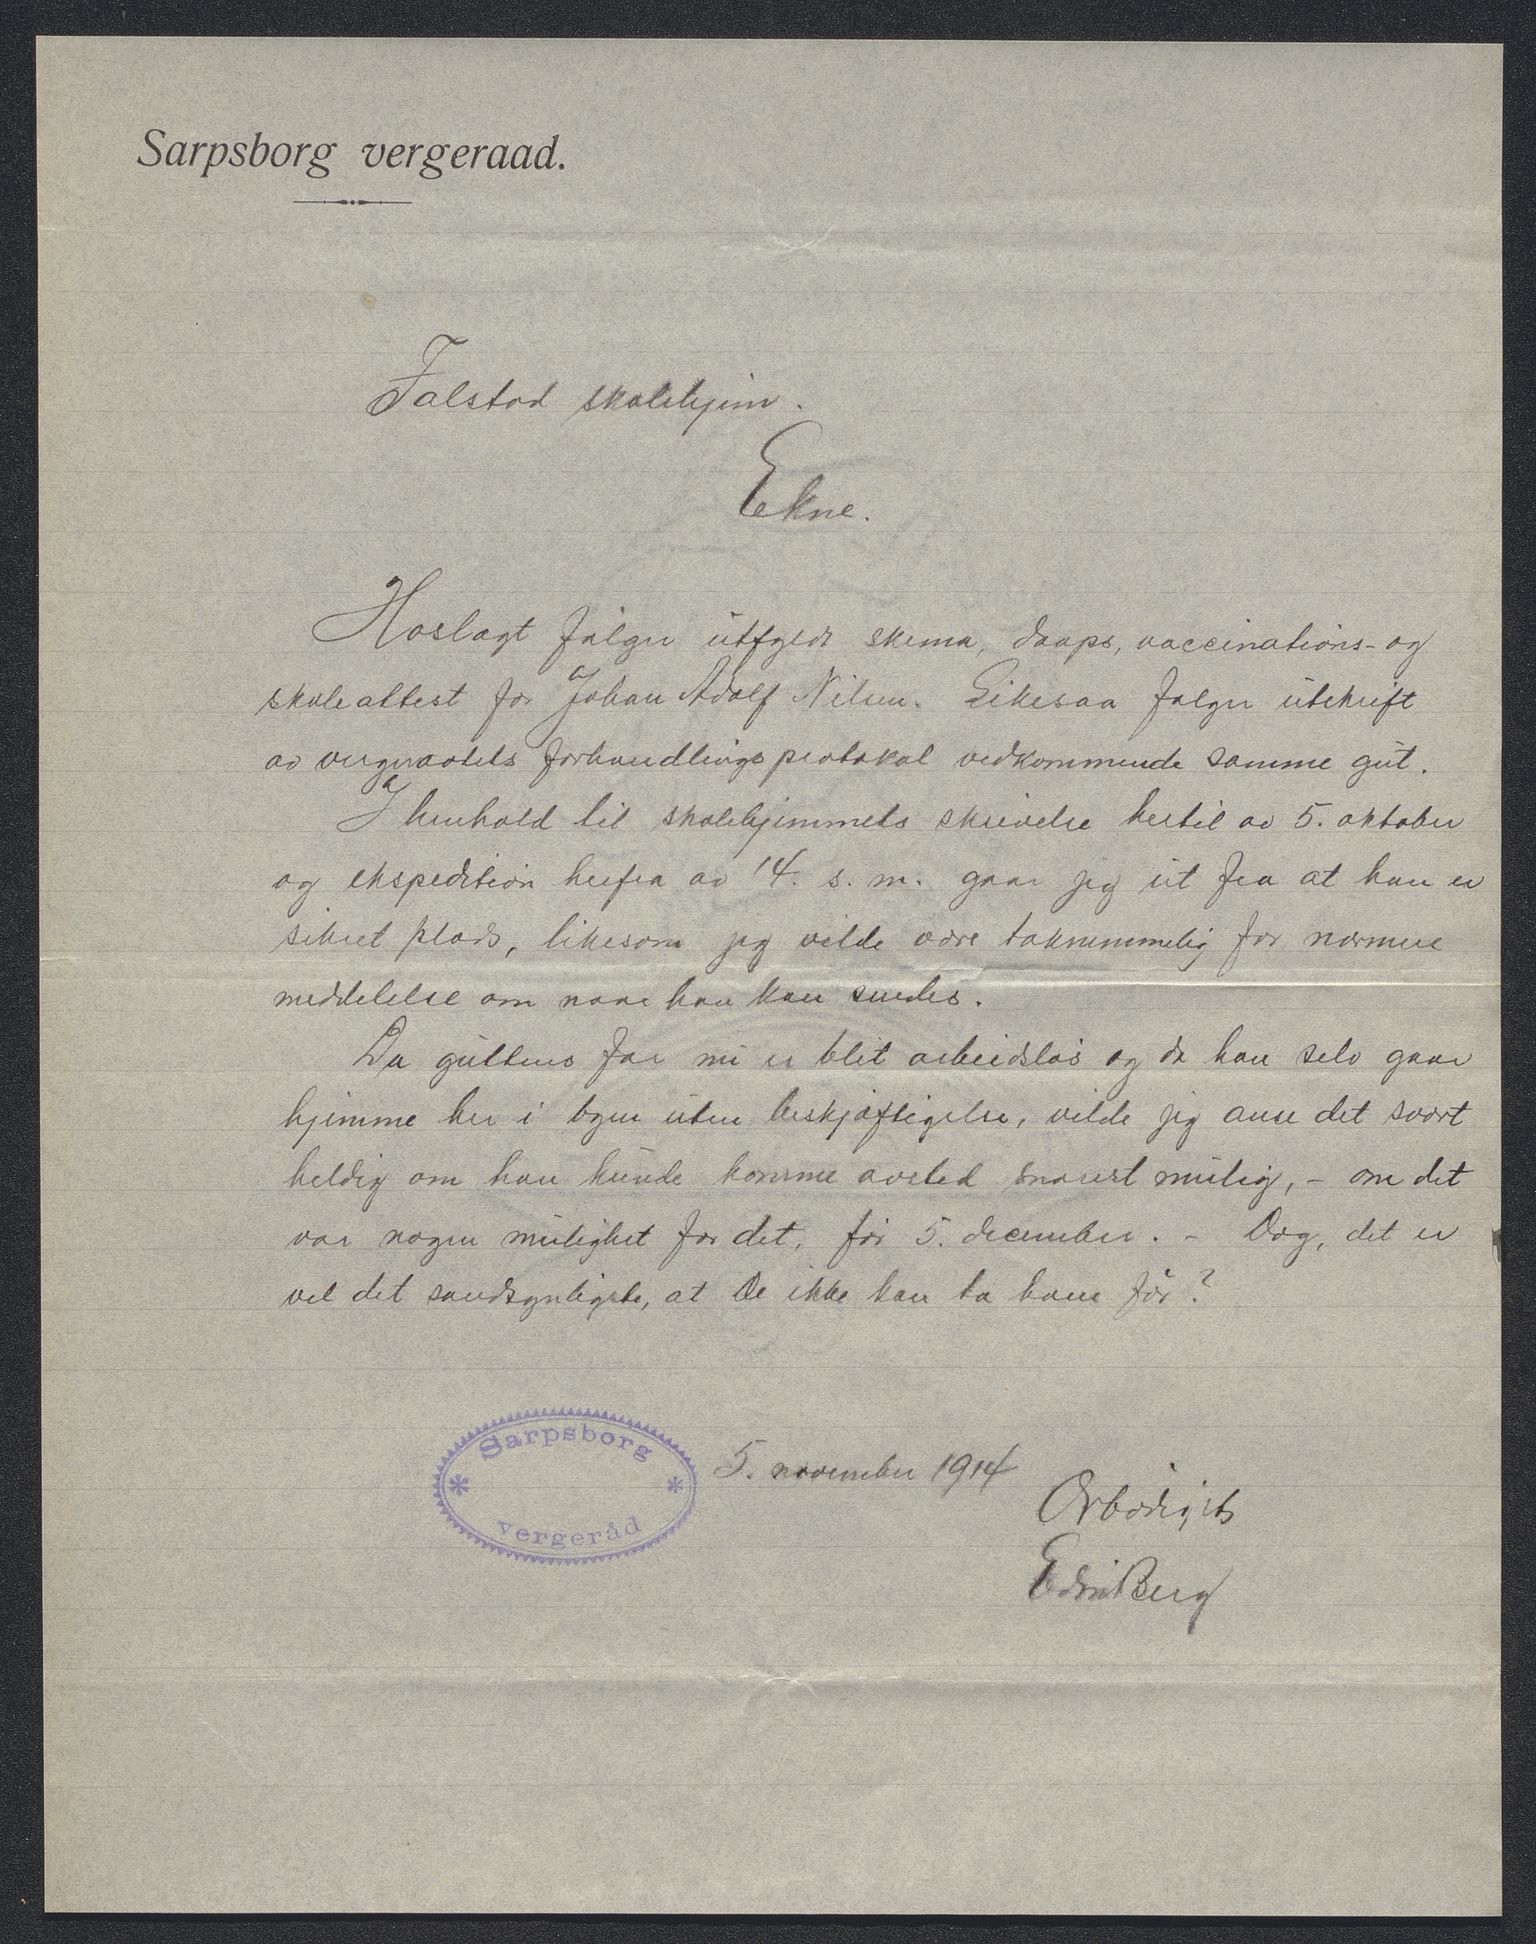 Sarpsborg vergeraad.
Falstad skolehjem.
Ekne.
Hoslagt følger utfyldt skema, daaps, vaccinations- og
skoleattest for Johan Adolf Nilsen. Likesaa følger utskrift
av vergeraadets forhandlingsprotokol vedkommende samme gut.
I henhold til skolehjemmets skrivelse hertil av 5. oktober
og ekspedition herfra av 14. s. m. gaar jeg ut fra at han er
sikret plads, likesom jeg vilde være taknemmelig for nærmere
meddelelse om naar han kan sendes.
Da guttens far nu er blit arbeidsløs og da han selv gaar
hjemme her i byen uten beskjæftigelse, vilde jeg anse det svært
heldig om han kunde komme avsted snarest mulig, - om det
var nogen mulighet for det, før 5. december. - Dog, det er
vel det sandsynligste, at De ikke kan ta ham før?
Sarpsborg
vergeråd
5. november 1914
Ærbødigst
Edvin Berg